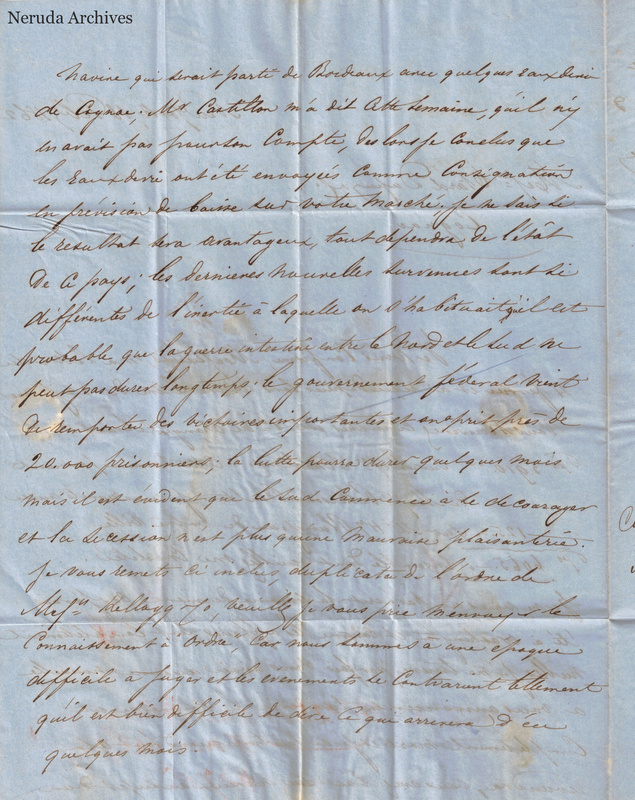 Neruda Archives
navire qui serait parti de Bordeaux avec quelques Eaux devie
de Cognac. Mr Castillon m'a dit cette semaine, qu'il n'y
en avait pas pour son Compte, des lors je conclus que
les Eaux devie ont été envoyées comme Consignation
en prévision de baisse sur votre marché. je ne sais si
le resultat sera avantageux, tout dependra de l'état
de ce pays; les dernieres nouvelles survenues sont si
différentes de l'inertie à laquelle on s'habituait qu'il est
probable que la guerre intestine entre le Nord et le Sud ne
peut pas durer longtemps; le gouvernement féderal vient
de remporter des victoires importantes et on a pris près de
20.000 prisonniers; la lutte pourra durer quelques mois
mais il est évident que le Sud commence à se decourager
et la secession n'est plus qu'une mauvaise plaisanterie.
Je vous remets ci inclus, duplicata de l'ordre de
Kellogg veuillez je vous prie m'envoyer le
Connaissement à "ordre", car nous sommes à une époque
difficile à juger et les evenements se contrarient tellement
qu'il est bien difficile de dire ce qui arrivera d'ici
quelques mois.